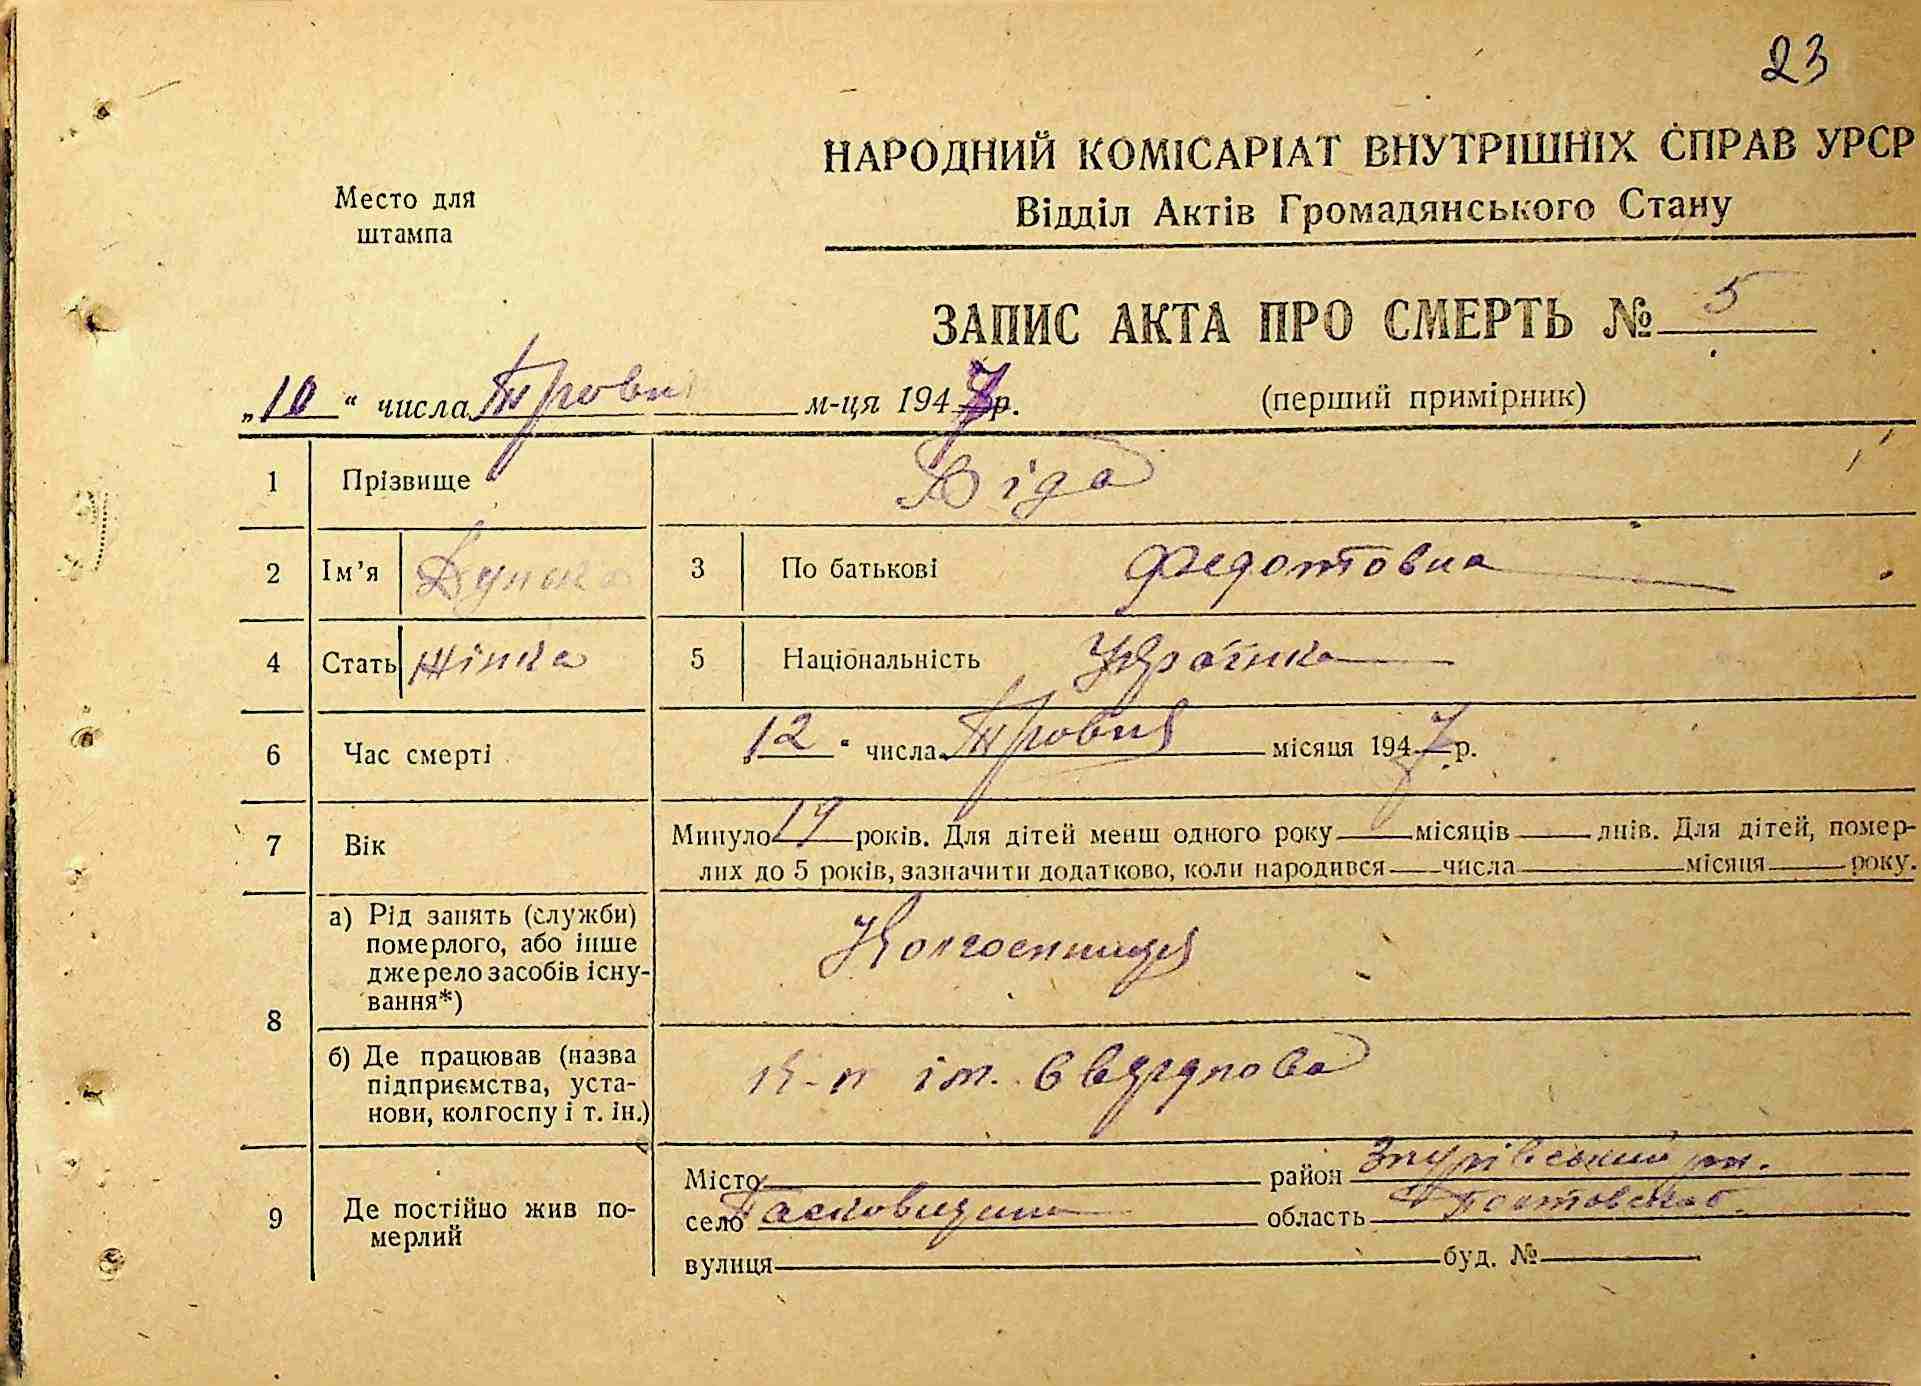 23
НАРОДНИЙ КОМІСАРІАТ ВНУТРІШНІХ СПРАВ УРСР
Відділ Актів Громадянського Стану
Место для
штампа
ЗАПИС АКТА ПРО СМЕРТЬ № 5
„10“ числа Тровня м-ця 1947 р. (перший примірник)
1 Прізвище Віда
2 Ім’я 3 По батькові Федотовна
4 Стать жінка 5 Національність Українка
6 Час смерті „12“ числа Тровня місяця 1947 р.
7 Вік Минуло 19 років. Для дітей менш одного року місяців днів. Для дітей, помер-
лих до 5 років, зазначити додатково, коли народився числа місяця року.
8 а) Рід занять (служби) померлого, або інше джерело засобів існу-вання*) Колгоспниця
б) Де працював (назва підприємства, уста-нови, колгоспу і т. ін.) к-п ім. Свердлова
9 Де постійно жив по-мерлий
Місто район Згурівський рн.
село область Полтовська об.
вулиця буд. №